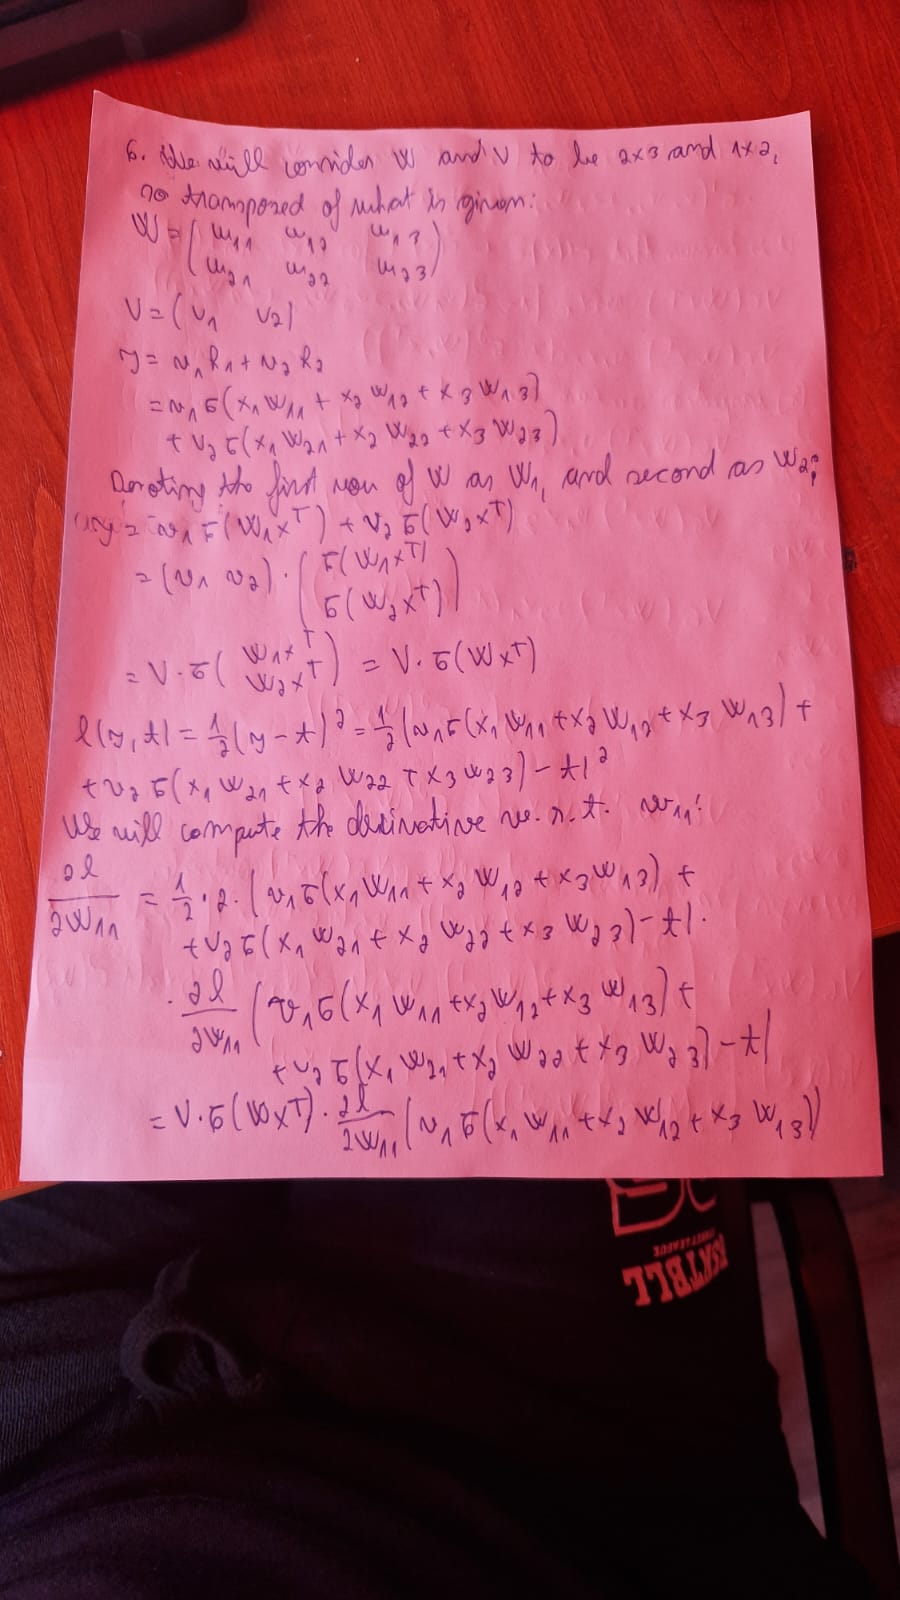 6. We will consider W and V to be 2x3 and 1x2,
so transposed of what is given:
W = ( w11 w12 w13
w21 w22 w23 )
V = ( v1 v2 )
y = v1 h1 + v2 h2
= v1 σ(x1 w11 + x2 w12 + x3 w13)
+ v2 σ(x1 w21 + x2 w22 + x3 w23)
Denoting the first row of W as W1, and second as W2:
y = v1 σ(W1xᵀ) + v2 σ(W2xᵀ)
= (v1 v2) · ( σ(W1xᵀ)
σ(W2xᵀ) )
= V·σ( W1xᵀ
W2xᵀ ) = V·σ(Wxᵀ)
l(y, t) = 1/2 (y - t)² = 1/2 (v1 σ(x1 w11 + x2 w12 + x3 w13) +
+ v2 σ(x1 w21 + x2 w22 + x3 w23) - t)²
We will compute the derivative w.r.t. w11:
∂l/∂w11 = 1/2 · 2 · (v1 σ(x1 w11 + x2 w12 + x3 w13) +
+ v2 σ(x1 w21 + x2 w22 + x3 w23) - t) ·
· ∂l/∂w11 (v1 σ(x1 w11 + x2 w12 + x3 w13) +
+ v2 σ(x1 w21 + x2 w22 + x3 w23) - t)
= V·σ(Wxᵀ) · ∂l/∂w11 (v1 σ(x1 w11 + x2 w12 + x3 w13))